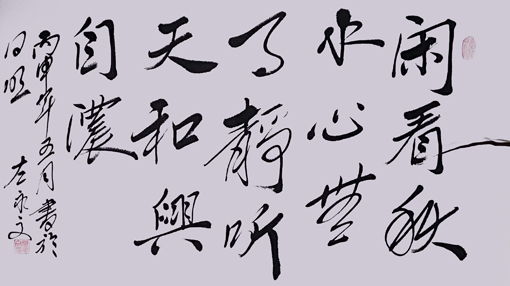 闲看秋
水心無
事靜听
天和興
自濃
丙申年五月書於
左永文